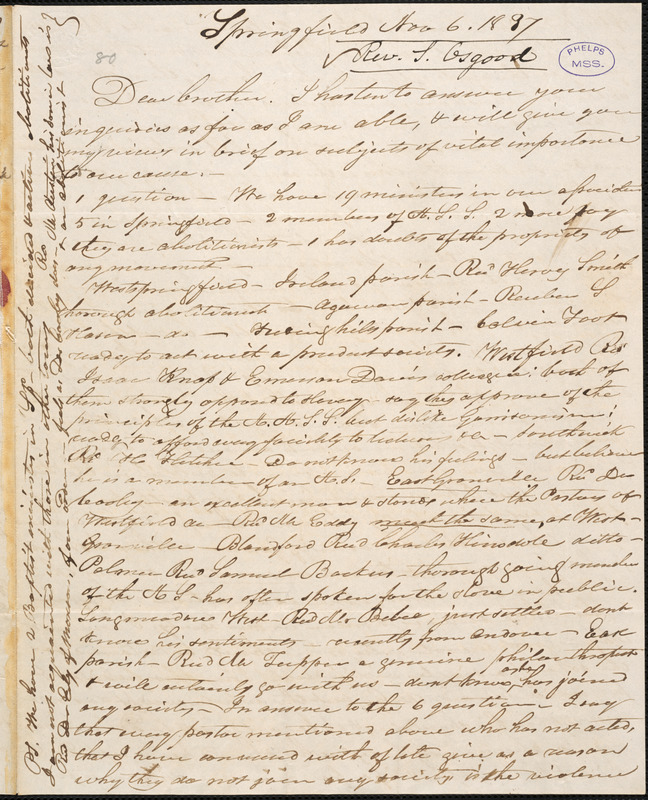 Springfield Nov 6. 1837
Rev. S. Osgood
PHELPS
MSS.
80
Dear brother. I hasten to answer your
inquiries as far as I am able, & will give you
my views in brief on subjects of vital importance
to our cause. —
1 question — We have 19 ministers in our association
5 in Springfield — 2 members of A. S. S. 2 more say
they are abolitionists — 1 has doubts of the propriety of
any movement. —
Westspringfield — Ireland parish — Revd Hervey Smith
thorough abolitionist — Agawam parish — Reuben S
Hazen — do — Feeding hills parish — Calvin Foot
ready to act with a prudent society. Westfield Revd
Isaac Knapp & Emerson Davis colleague: both of
them strongly opposed to slavery — say they approve of the
principles of the A. A. S. S. but dislike Garrisonism;
ready to afford every facility to lectures &a — Southwick
Rev. Fletcher — Do not know his feelings — but believe
he is a member of an A. S. — East Granville, Rev. Dr
Cooley — an excellent man & stands where the Pastors of
Westfield do — Revd Mr Eddy much the same, at West-
Granville — Blandford Revd Charles Hinsdale ditto —
Palmer Revd Samuel Backus — thorough going member
of the A S — has often spoken for the slave in public.
Longmeadow West — Revd Mr Beebee, just settled — dont
know his sentiments — recently from andover — East
parish — Revd Mr Tupper a genuine philanthropist
& will certainly go with us — dont know, has joined
any society — In answer to the 6 question — I say
that every pastor mentioned above who has not acted,
that I have conversed with of late give as a reason
why they do not join any society is the violence
PS. We have 2 Baptist ministers in Spfd both decided & active abolitionists
I am not acquainted with those in other towns
Rev. Dr Ely of Monson, of our Asso.